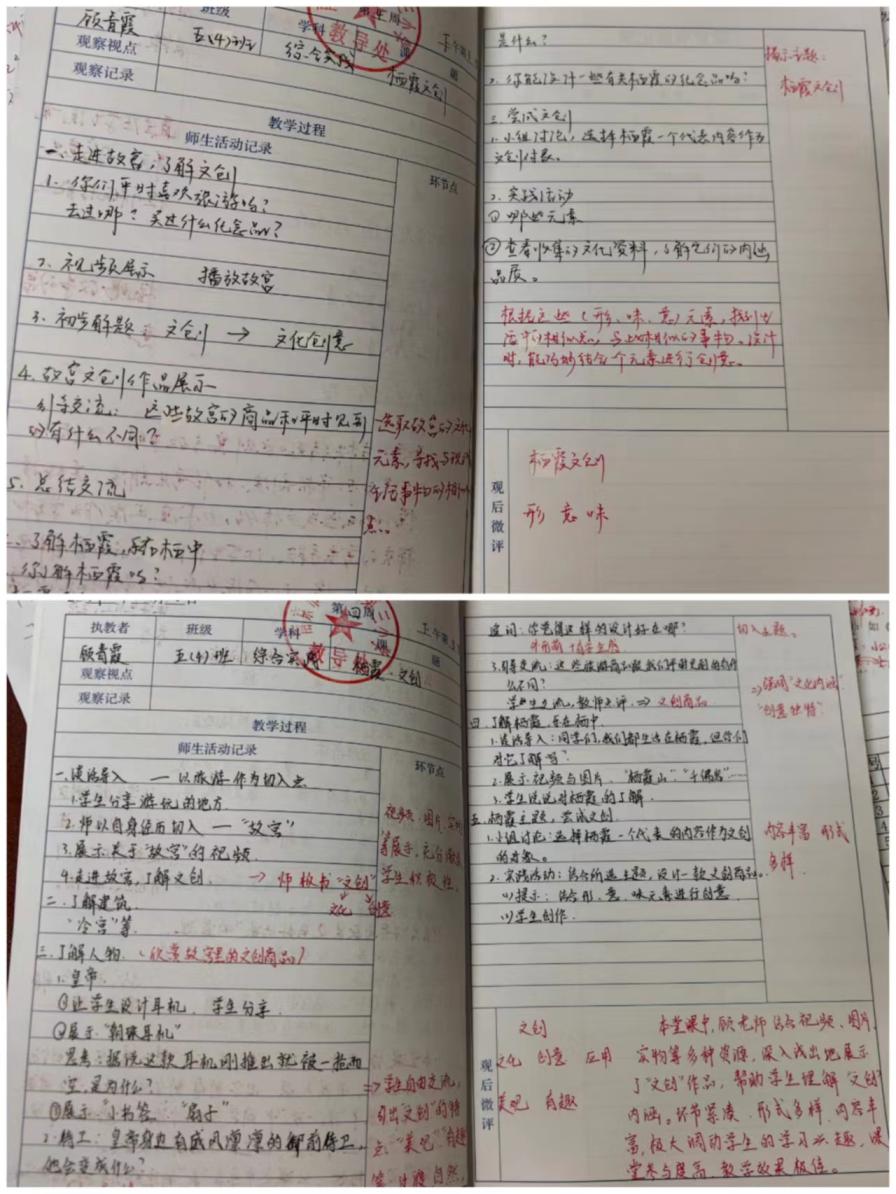 班级
第七周
顾青霞
五(4)班
学科
综合实践
教导处
课
题
观察视点
栖霞文创
观察记录
教学过程
师生活动记录
环节点
一、走进故宫，了解文创
1. 你们平时喜欢旅游吗？
去过哪？买过什么纪念品？
2. 视频展示 播放故宫
3. 初步解题：文创 → 文化创意
4. 故宫文创作品展示
引导交流：这些故宫的商品和平时见到
的有什么不同？
选取故宫的文化
元素，寻找与现代
生活事物的相似
点。
5. 总结交流
二、了解栖霞，
你了解栖霞吗？
是什么？
2. 你能设计一些有关栖霞的纪念品吗？
揭示主题：
栖霞文创
三、尝试文创
1. 小组讨论，选择栖霞一个代表内容作为
文创对象。
2. 实践活动
① 哪些元素
② 查看收集的文化资料，了解它们的内涵
品质。
根据这些（形、味、意）元素，找到生
活中的相似点，与此相似的事物。设计
时，能巧妙结合个元素进行创意。
观后微评
栖霞文创
形 意 味
第四周
执教者
班级
学科
课
题
顾青霞
五(4)班
综合实践
栖霞·文创
教导处
观察视点
观察记录
教学过程
师生活动记录
环节点
一、谈话导入 — 以旅游作为切入点
1. 学生分享游玩的地方
2. 师以自身经历切入 — "故宫"
3. 展示关于"故宫"的视频
4. 走进故宫，了解文创. → 师板书"文创"
文化 创意
视频、图片、实物
等展示，充分调动
学生积极性。
二、了解建筑
"冷宫"等.
三、了解人物.（欣赏故宫里的文创商品）
1. 皇帝.
①让学生设计耳机. 学生分享.
②展示"朝珠耳机"
思考：据说这款耳机刚推出就被一抢而
空，是为什么？
③展示"小书签" "扇子"
2. 侍卫：皇帝身边有威风凛凛的御前侍卫，
他会变成什么？
⇒ 学生自由交流，
引出"文创"的特
点："美观""有趣
等，过渡自然，
追问：你觉得这样的设计好在哪？
切入主题。
3. 引导交流：这些旅游商品跟我们平时见到的有什
么不同？
学生交流，教师点评. ⇒ 文创商品
⇒ 强调"文化内涵"
"创意独特".
四、了解栖霞，乐在栖中
1. 谈话导入：同学们，我们都生活在栖霞，但你们
对它了解吗？
2. 展示视频与图片. "栖霞山" "千佛岩"……
3. 学生说说对栖霞的了解.
五、栖霞主题，尝试文创.
1. 小组讨论：选择栖霞一个代表的内容作为文创
的对象。
2. 实践活动：结合所选主题，设计一款文创商品.
(1) 提示：结合形、意、味元素进行创意.
(2) 学生创作.
内容丰富 形式
多样
观后微评
文创
文化 创意 应用
美观 有趣
本堂课中，顾老师结合视频、图片、
实物等多种资源，深入浅出地展示
了"文创"作品，帮助学生理解"文创"
内涵。环节紧凑、形式多样、内容丰
富，极大调动学生的学习兴趣，课
堂参与度高，教学效果极佳。